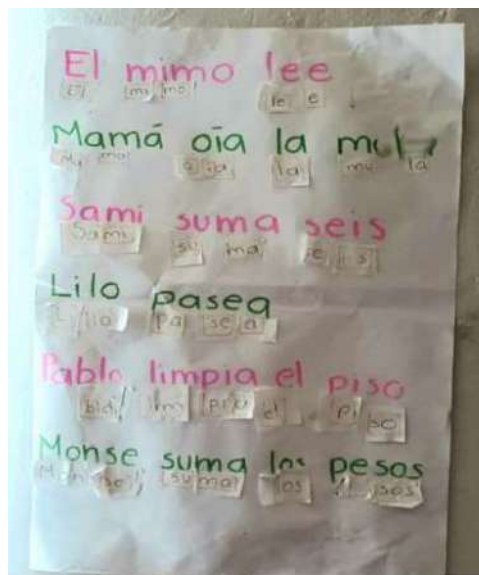 El mimo lee
El mi mo le e
Mamá oía la mula
Ma má la mu la
Sami suma seis
Sami su ma
Lilo pasea
Li lo pa se a
Pablo limpia el piso
el pi so
Monse suma los pesos
suma los sos